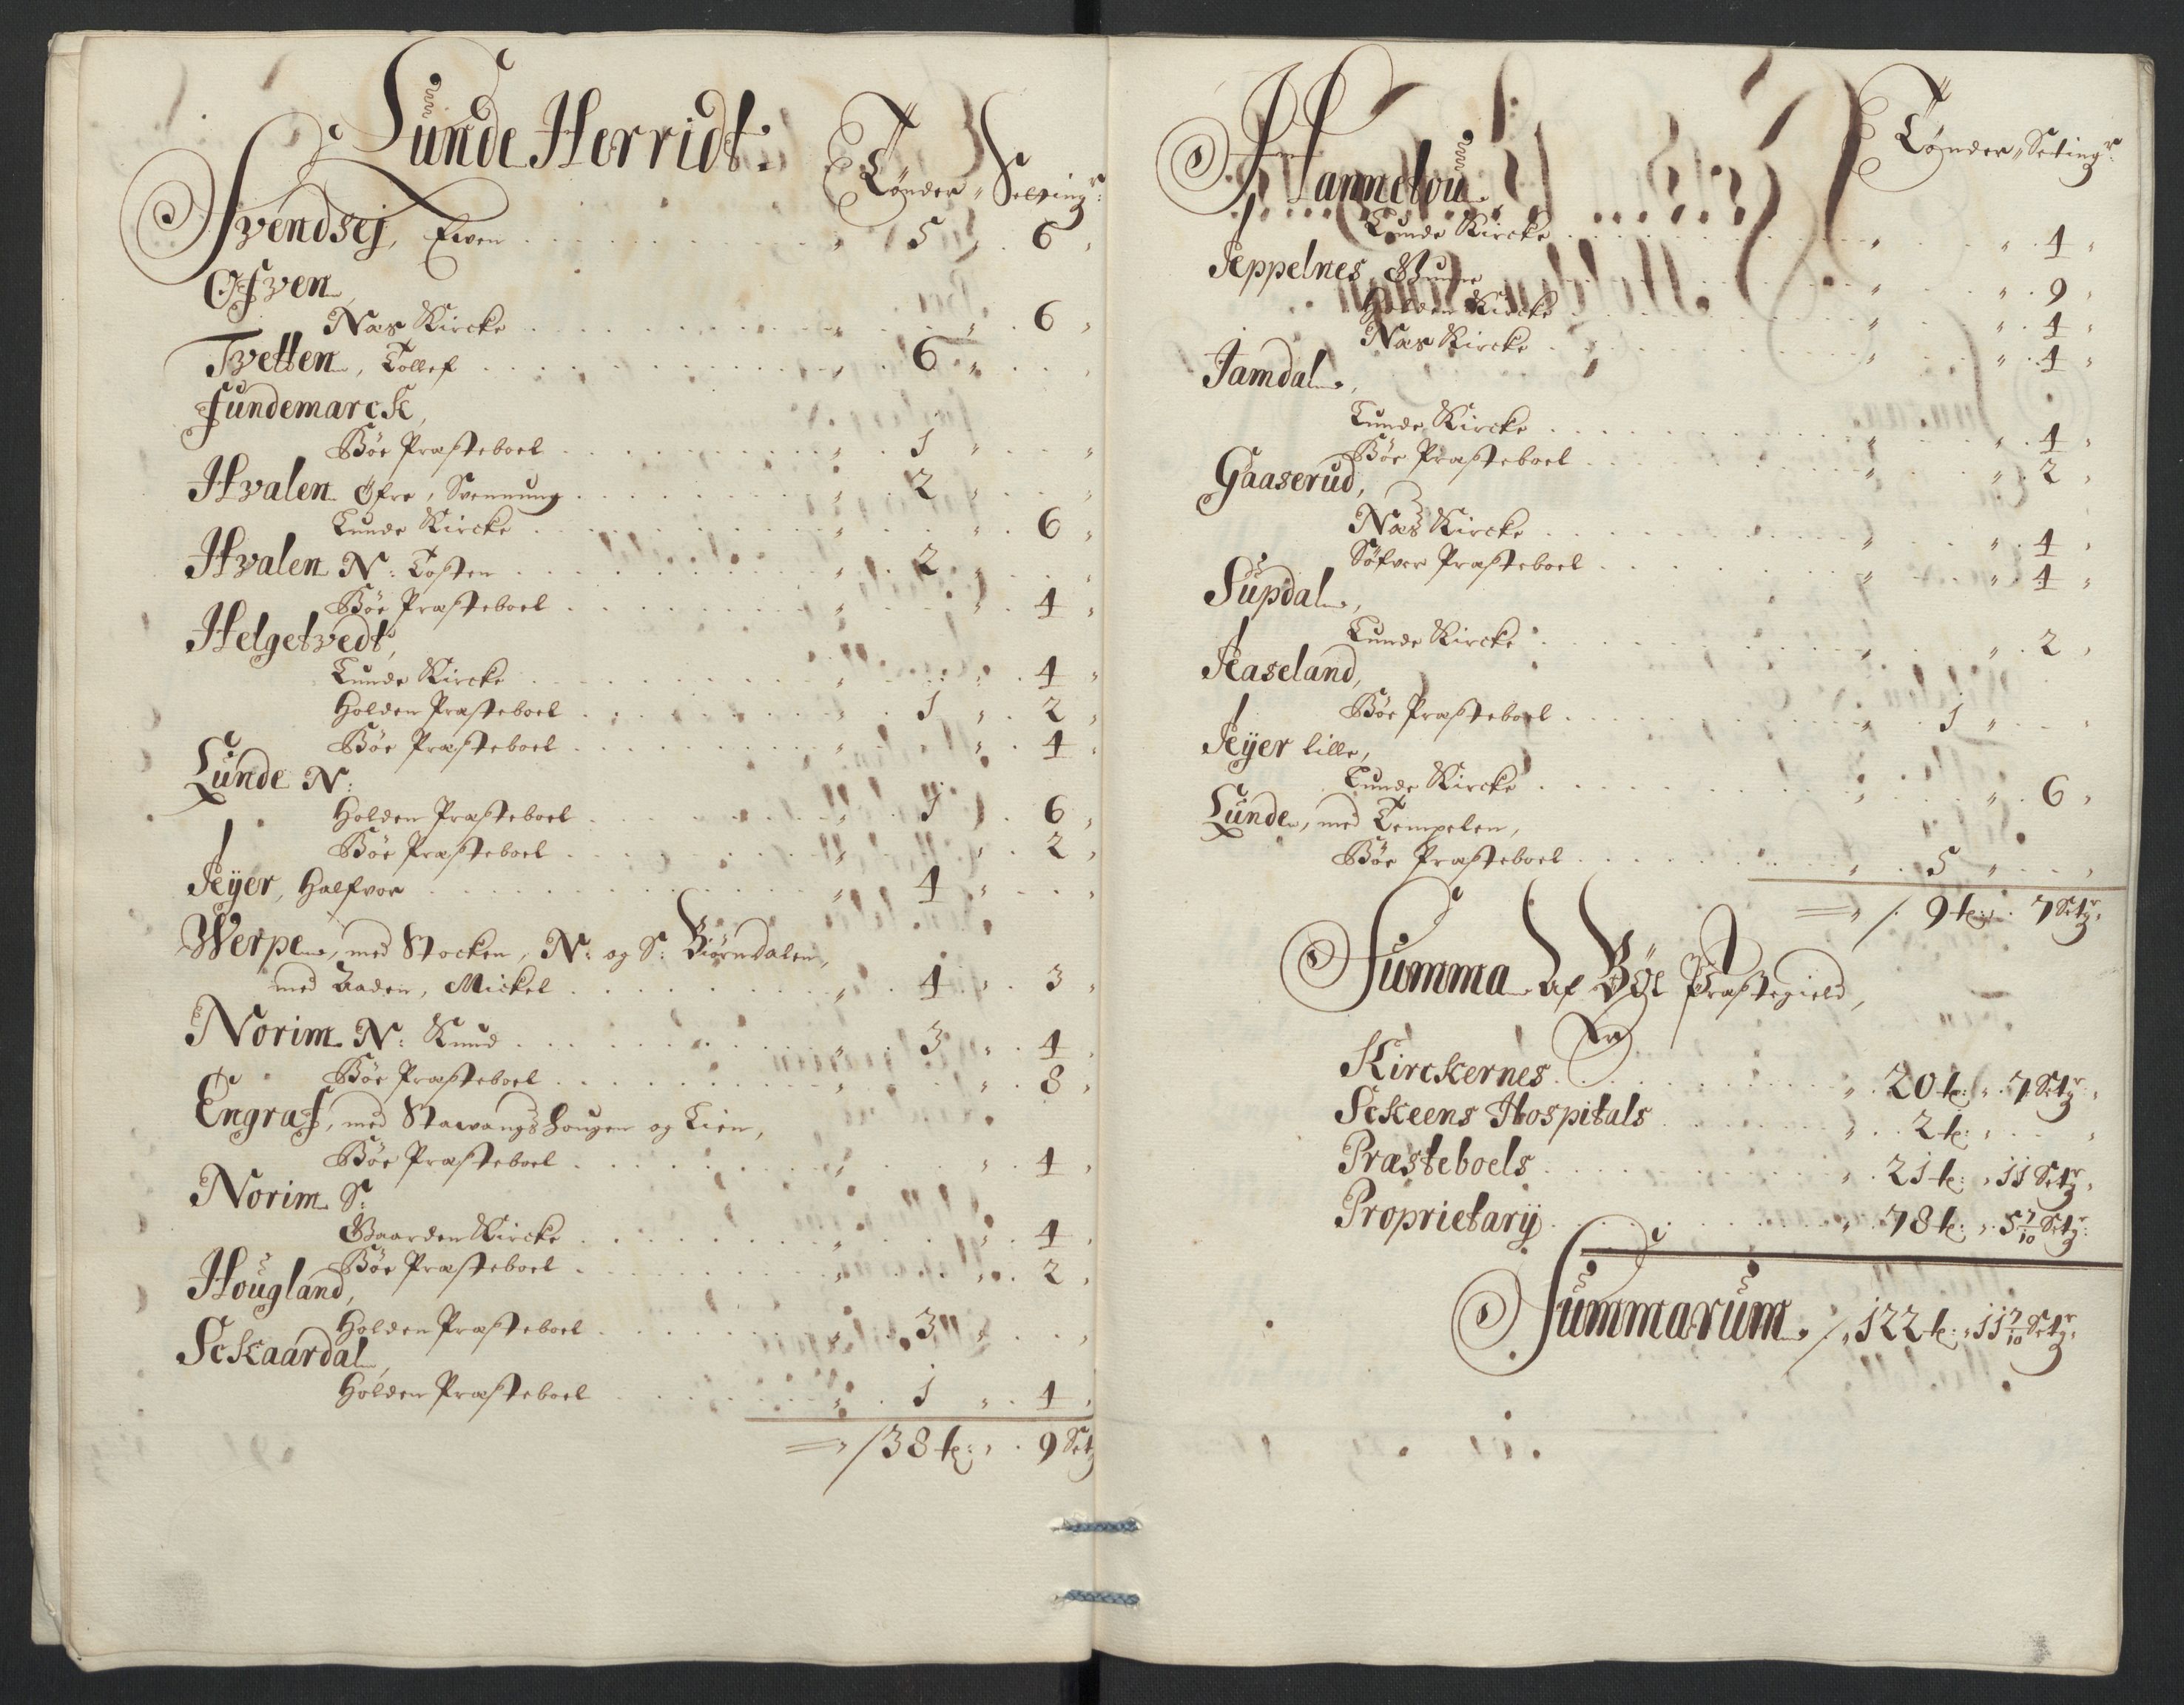 Lunde Herridt.
Tønder " Setting:r
Svendsej, Even . . . " 5 " 6 "
Ofven,
Næs Kircke . . . " . . " 6 "
Tvetten, Tollef . . . " 6 " . . "
Fundemarck,
Bøe Præsteboel . . . " 1 " . . "
Hvalen Øfre, Svennung . . . " 2 " . . "
Lunde Kircke . . . " . . " 6 "
Hvalen N: Tosten . . . " 2 " . . "
Bøe Præsteboel . . . " . . " 4 "
Helgetvedt,
Lunde Kircke . . . " . . " 4 "
Holden Præsteboel . . . " 1 " 2 "
Bøe Præsteboel . . . " . . " 4 "
Lunde N:
Holden Præsteboel . . . " 1 " 6 "
Bøe Præsteboel . . . " . . " 2 "
Hejer, Halfvor . . . " 4 " . . "
Werpe, med Stocken, N: og S: Biørndalen,
med Aaden, Mickel . . . " 4 " 3 "
Norim N: Knud . . . " 3 " 4 "
Bøe Præsteboel . . . " . . " 8 "
Engraf, med Stavangs hougen og Lien,
Bøe Præsteboel . . . " . . " 4 "
Norim S:
Gaarden Kircke . . . " . . " 4 "
Bøe Præsteboel . . . " . . " 2 "
Hougland,
Holden Præsteboel . . . " 3 " . . "
Sckaardal,
Holden Præsteboel . . . " 1 " 4 "
= " / 38 t: " 9 Set
Tønder " Seting:r
Hannetou,
Lunde Kircke . . . " . . " 4 "
Heppelnes, Gunne . . . " . . " 9 "
Holden Kircke . . . " . . " 4 "
Næs Kircke . . . " . . " 4 "
Jamdal,
Lunde Kircke . . . " . . " 4 "
Bøe Præsteboel . . . " . . " 2 "
Gaaserud,
Næs Kircke . . . " . . " 4 "
Søfver Præsteboel . . . " . . " 4 "
Supdal,
Lunde Kircke . . . " . . " 2 "
Haseland,
Bøe Præsteboel . . . " 1 " . . "
Hejer lille,
Lunde Kircke . . . " . . " 6 "
Lunde, med Tempelen,
Bøe Præsteboel . . . " 5 " . . "
= " / 9 t: " 7 Set:r
Summa Af Bøe Præstegield,
Kirckernes . . . " 20 t: " 7 Set:r
Sckeens Hospitals . . . " 2 t: " . . "
Præsteboels . . . " 21 t: " 11 Set:r
Proprietarij . . . " 78 t: " 5 7/10 Set:r
Summarum / " 122 t: " 11 7/10 Set:r